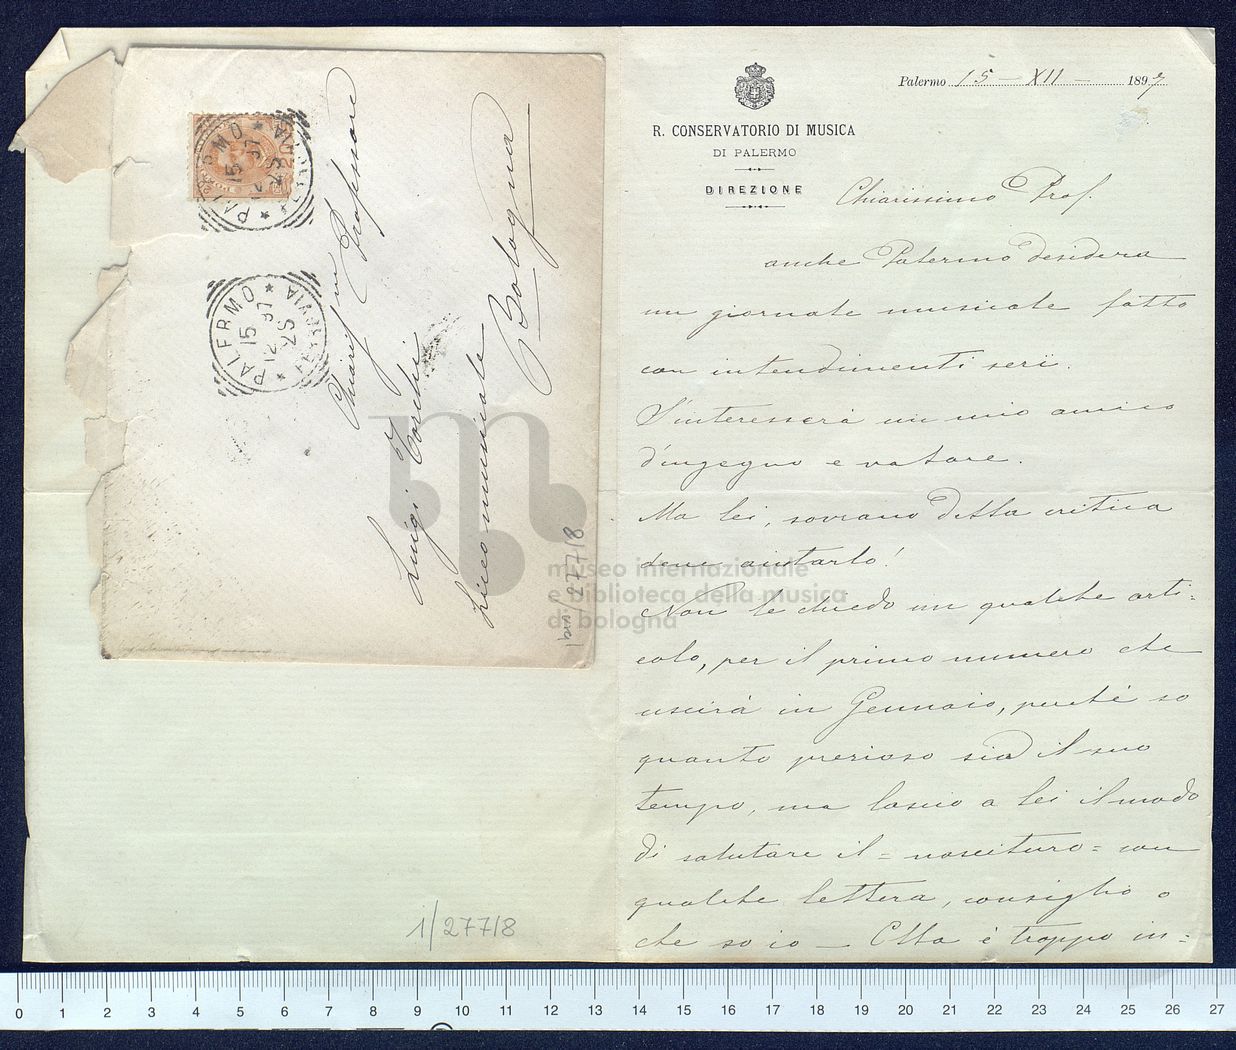 PALERMO
15
12 97
7 S
FERROVIA
PALERMO
15
12 97
7 S
FERROVIA
Chiariss. Professore
Luigi Torchi
Liceo musicale
Bologna
1bis/277/8
1/277/8
Palermo 15 - XII - 1897
R. CONSERVATORIO DI MUSICA
DI PALERMO
DIREZIONE
Chiarissimo Prof.
anche Palermo desidera
un giornale musicale fatto
con intendimenti seri.
S'interesserà un mio amico
d'ingegno e valore.
Ma lei, sovrano della critica
deve aiutarlo!
Non le chiedo un qualche arti=
colo, per il primo numero che
uscirà in Gennaio, perché so
quanto prezioso sia il suo
tempo, ma lascio a lei il modo
di salutare il = nascituro = con
qualche lettera, consiglio o
che so io — Ella è troppo in=
museo internazionale
e biblioteca della musica
di bologna
0 1 2 3 4 5 6 7 8 9 10 11 12 13 14 15 16 17 18 19 20 21 22 23 24 25 26 27